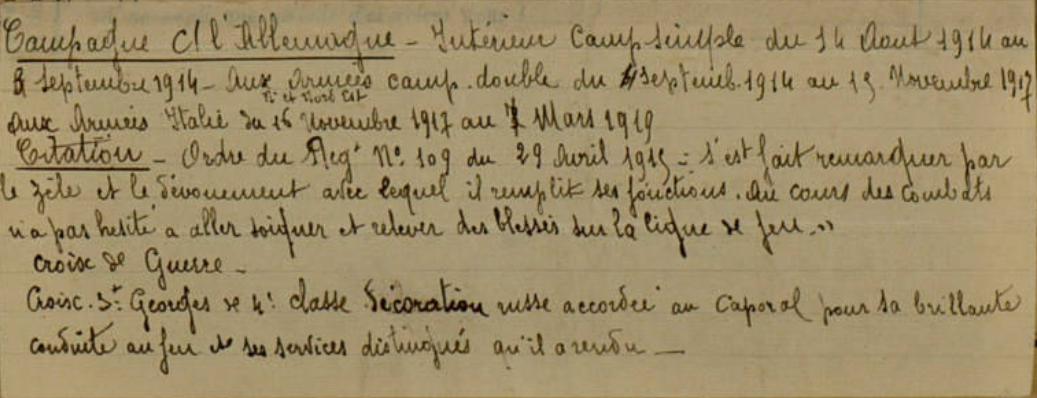 Campagne c/ l'Allemagne - Intérieur Camp. simple du 14 Aout 1914 au
3 septembre 1914 - Aux Armées camp. double du 4 septemb. 1914 au 15 Novembre 1917
N. et Nord Est
aux Armées Italie du 16 Novembre 1917 au 7 Mars 1919
Citation - Ordre du Regt No. 109 du 29 Avril 1915 = s'est fait remarquer par
le zèle et le dévouement avec lequel il remplit ses fonctions. Au cours des combats
n'a pas hesité a aller soigner et relever des blessés sur la ligne de feu."
Croix de Guerre -
Croix St Georges de 4e classe Décoration russe accordée au Caporal pour sa brillante
conduite au feu et ses services distingués qu'il a rendu -